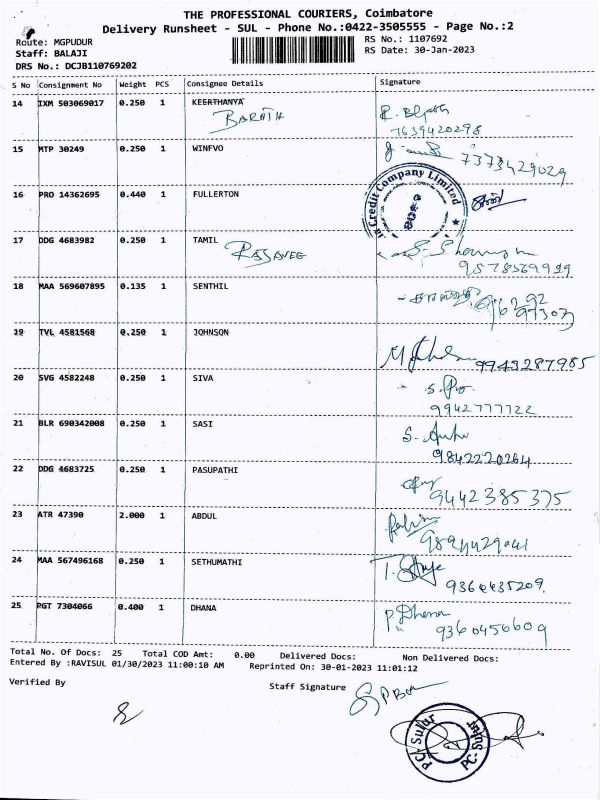 THE PROFESSIONAL COURIERS, Coimbatore
Delivery Runsheet - SUL - Phone No.:0422-3505555 - Page No.:2
Route: MGPUDUR
RS No.: 1107692
Staff: BALAJI
RS Date: 30-Jan-2023
DRS No.: DCJB110769202
S No Consignment No Weight PCS Consignee Details Signature
14 IXM 503069017 0.250 1 KEERTHANYA
BARATH
7639420298
15 MTP 30249 0.250 1 WINFVO
7373429029
16 PRO 14362695 0.440 1 FULLERTON
Credit Company Limited
17 DDG 4683982 0.250 1 TAMIL
9578569919
18 MAA 569607895 0.135 1 SENTHIL
19 TVL 4581568 0.250 1 JOHNSON
9943287985
20 SVG 4582248 0.250 1 SIVA
9942777722
21 BLR 690342008 0.250 1 SASI
9842220264
22 DDG 4683725 0.250 1 PASUPATHI
9442385375
23 ATR 47390 2.000 1 ABDUL
24 MAA 567496168 0.250 1 SETHUMATHI
25 PGT 7304066 0.400 1 DHANA
P. Dhana
9360456609
Total No. Of Docs: 25 Total COD Amt: 0.00 Delivered Docs: Non Delivered Docs:
Entered By :RAVISUL 01/30/2023 11:00:10 AM Reprinted On: 30-01-2023 11:01:12
Verified By
Staff Signature
PC-Sulur
PC-Sulur